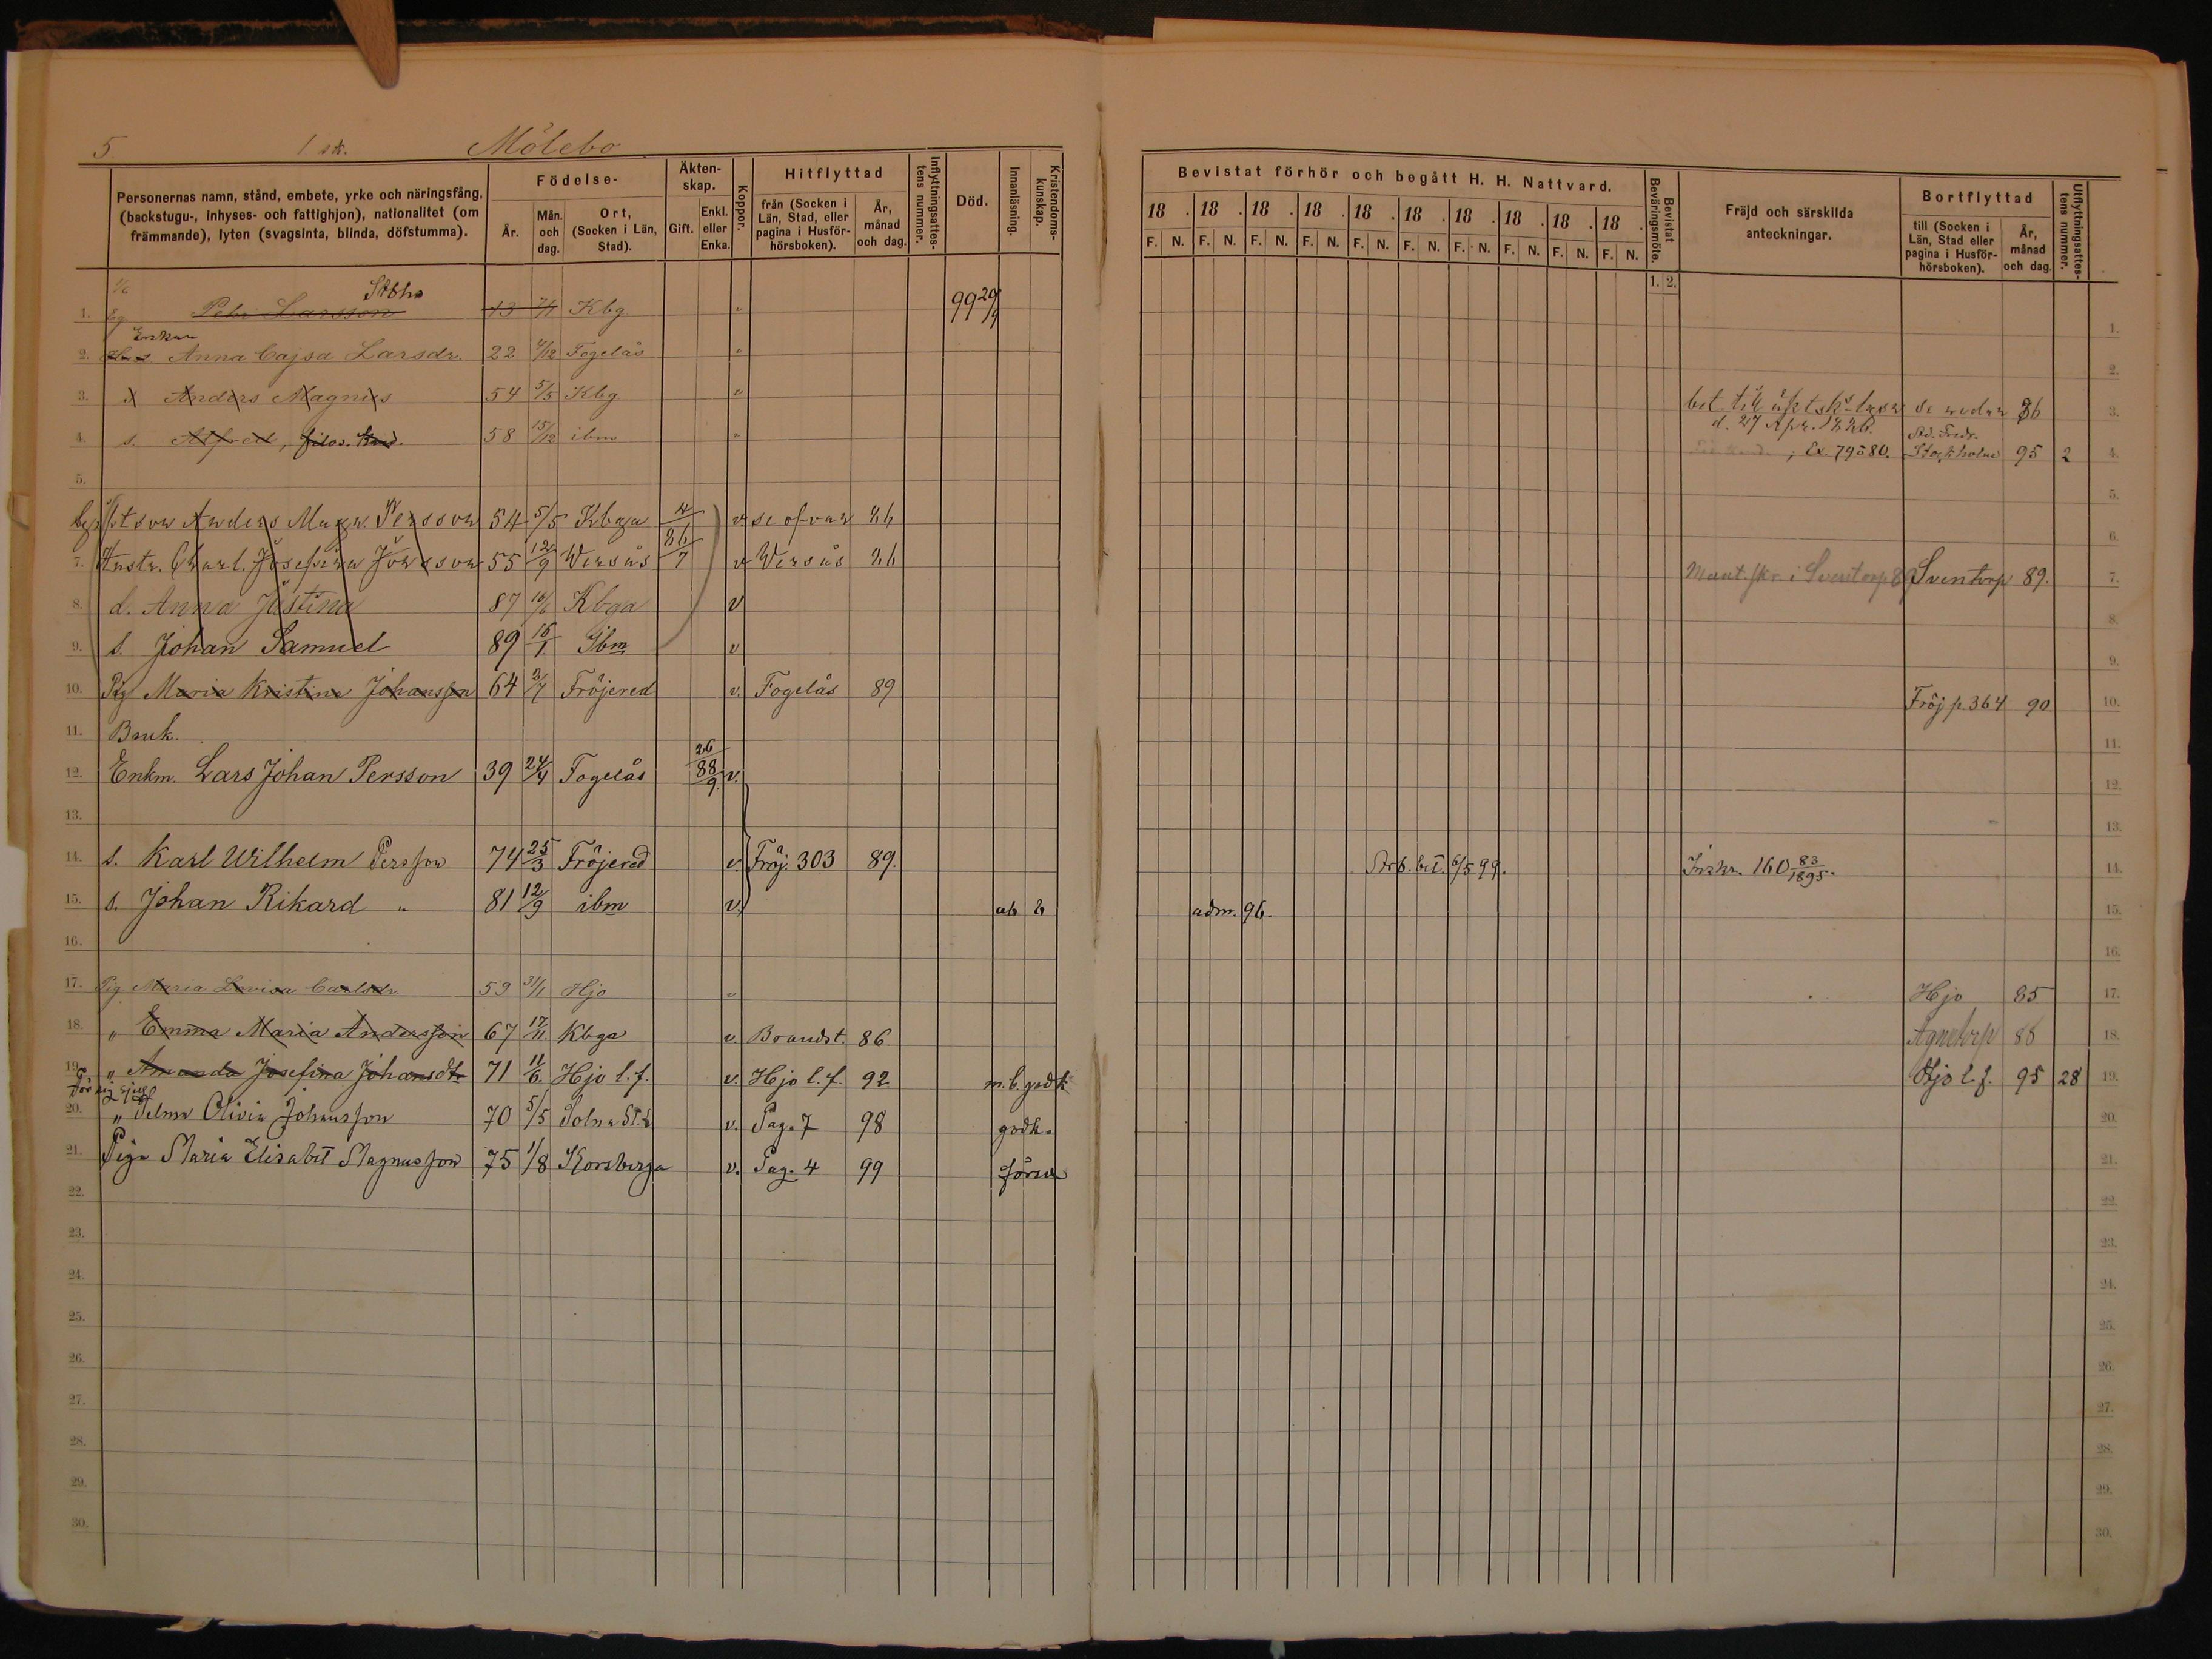 5. 1 sk. Mölebo
Personernas namn, stånd, embete, yrke och näringsfång, (backstugu-, inhyses- och fattighjon), nationalitet (om främmande), lyten (svagsinta, blinda, döfstumma).
Födelse-
År.
Mån. och dag.
Ort, (Socken i Län, Stad).
Äkten-skap.
Gift.
Enkl. eller Enka.
Koppor.
Hitflyttad
från (Socken i Län, Stad, eller pagina i Husför-hörsboken).
År, månad och dag.
Inflyttningsattes-tens nummer.
Död.
Innanläsning.
Kristendoms-kunskap.
Bevistat förhör och begått H. H. Nattvard.
18 . 18 . 18 . 18 . 18 . 18 . 18 . 18 . 18 . 18 .
F. N. F. N. F. N. F. N. F. N. F. N. F. N. F. N. F. N. F. N.
Bevistat Beväringsmöte.
1. 2.
Fräjd och särskilda anteckningar.
Bortflyttad
till (Socken i Län, Stad eller pagina i Husför-hörsboken).
År, månad och dag.
Utflyttningsattes-tens nummer.
1. Eg Petr Larsson 13 7/1 Kbg " 99 29/9 1.
Enkan
2. Anna Cajsa Larsdr. 22 4/12 Fogelås " 2.
3. s Anders Magnus 54 5/5 Kbg " d. 27 Apr. 1886. se nedan 86 3.
4. s. Alfred, filos. Kand. 58 15/12 ibm " Ex. 79 o 80. Stockholm 95 2 4.
5. 5.
Anders Magn. Persson 54 5/5 Kbga 4/86 v. se ofvan 86 6.
7. Hustr. Charl. Josefina Jonsson 55 12/9 Wersås 7 v Wersås 86 Mant.skr i Sventorp 89 Sventorp 89. 7.
8. d. Anna Justina 87 16/6 Kbga v 8.
9. s. Johan Samuel 89 16/1 Ibm v 9.
10. Pig Maria Kristina Johansson 64 2/7 Fröjered v. Fogelås 89 Fröj p. 364 90 10.
11. Bruk. 11.
12. Enkm. Lars Johan Persson 39 24/4 Fogelås 26/88/9 v. 12.
13. 13.
14. s. Karl Wilhelm Persson 74 25/3 Fröjered v. Fröj. 303 89. Arb. bet. 6/5 99. Inskr. 160 83/1895. 14.
15. s. Johan Rikard " 81 12/9 ibm v. ab b adm. 96. 15.
16. 16.
17. Pig Maria Lovisa Carlsdr. 59 3/1 Hjo " Hjo 85 17.
18. " Emma Maria Andersson 67 17/11 Kbga v. Brandst. 86 Agnetorp 88 18.
19. " Amanda Josefina Johansdt. 71 11/6. Hjo l.f. v. Hjo l.f. 92 m.b. godk Hjo l.f. 95 28 19.
För sig sjelf
20. " Selma Olivia Johansson 70 5/5 Solna St.L v. Pag. 7 98 godk. 20.
21. Piga Maria Elisabet Magnusson 75 1/8 Korsberga v. Pag. 4 99 försv 21.
22. 22.
23. 23.
24. 24.
25. 25.
26. 26.
27. 27.
28. 28.
29. 29.
30. 30.